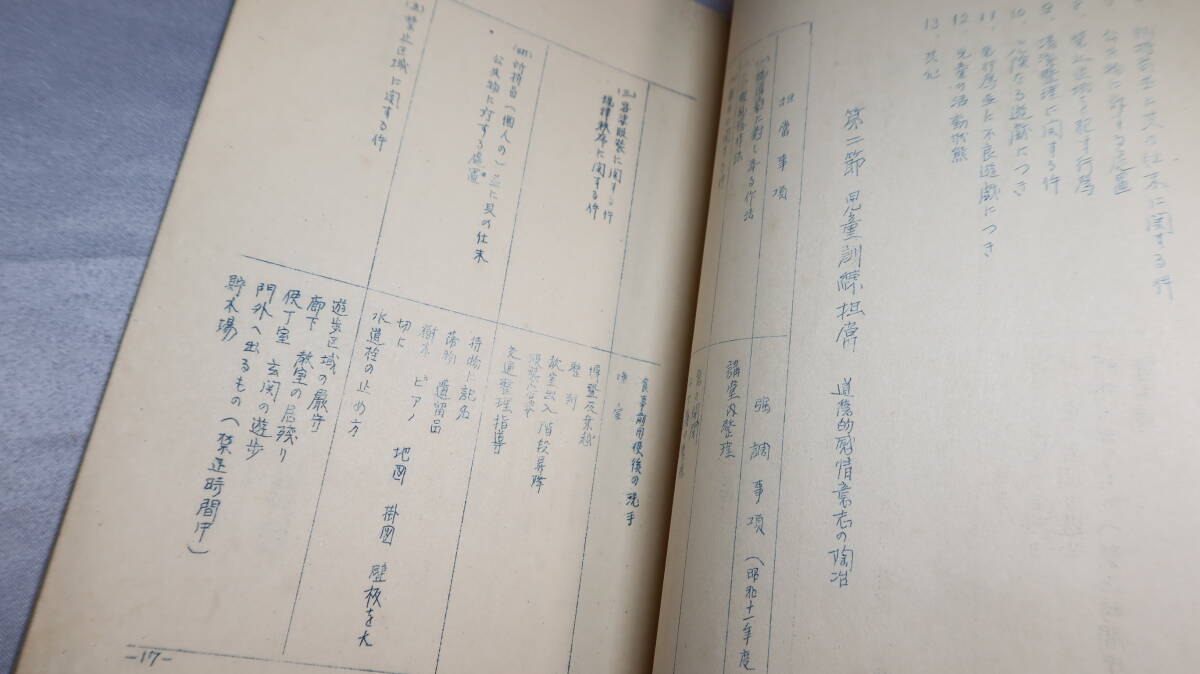 公共物に対する処置
8. 禁止区域を犯す行為
9. 清潔整理に関する件
10. 危険なる遊戯につき
11. 不良遊戯につき
12. 児童の活動状態
13. 其他
第二節 児童訓練担当 道徳的感情意志の陶冶
担当事項
強調事項(昭和十一年度
講堂内整理
食事前用便後の洗手
(三)容姿服装に関する件
規律秩序に関する件
整列
教室出入 階段昇降
交通整理指導
(四)所持品(個人の)並に其の仕末
公共物に対する処置
持物に記名
落物 遺留品
樹木 ピアノ 地図 掛図 壁板を大
切に
水道栓の止め方
(五)禁止区域に関する件
遊歩区域の厳守
廊下 教室の居残り
使丁室 玄関の遊歩
門外へ出るもの(禁足時間中)
貯木場
-17-